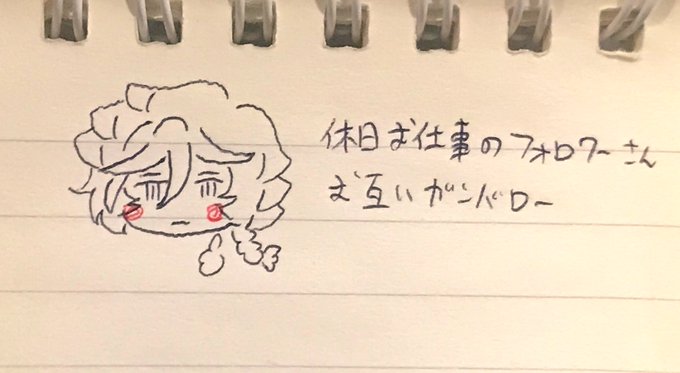 休日お仕事のフォロワーさん
お互いガンバロー